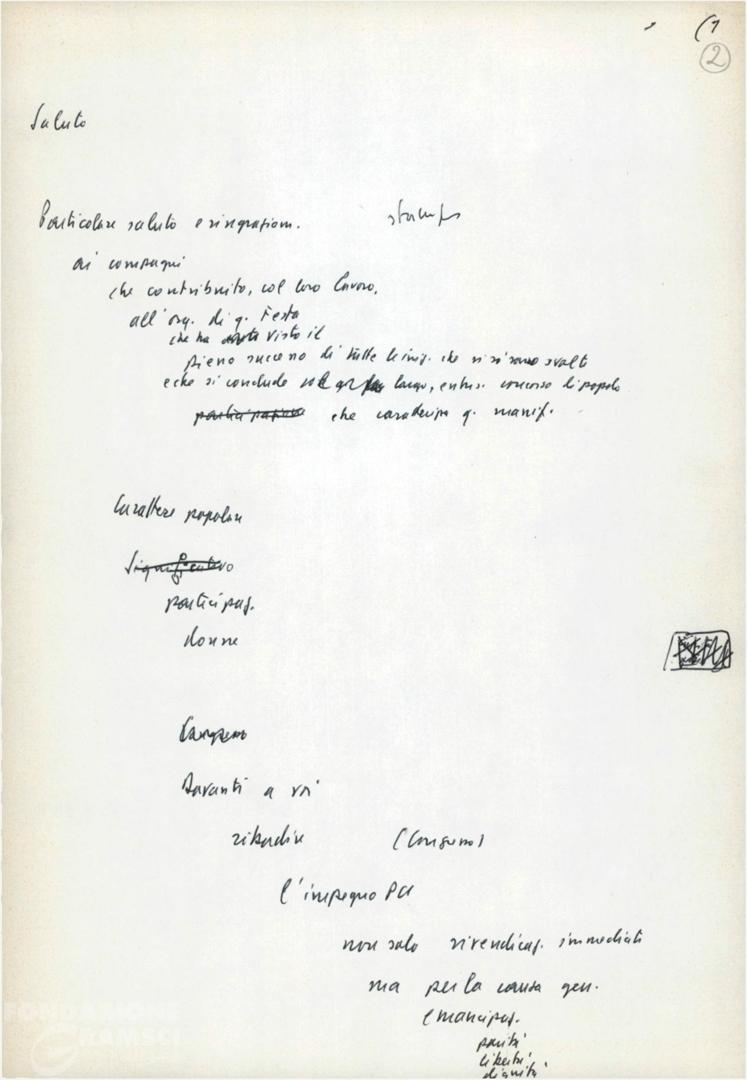 (1
2
Saluto
Particolare saluto e ringraziam. stampa
ai compagni
che contribuito, col loro lavoro,
all'org. di q. Festa
che ha visto il
pieno successo di tutte le iniz. che vi si sono svolte
e che si conclude largo, entus. concorso di popolo
che caratterizza q. manif.
Carattere popolare
Significativo
partecipaz.
donne
Congresso
Davanti a voi
ribadire (Congresso)
l'impegno PCI
non solo rivendicaz. immediati
ma per la causa gen.
emancipaz.
parità
libertà
dignità
FONDAZIONE
GRAMSCI